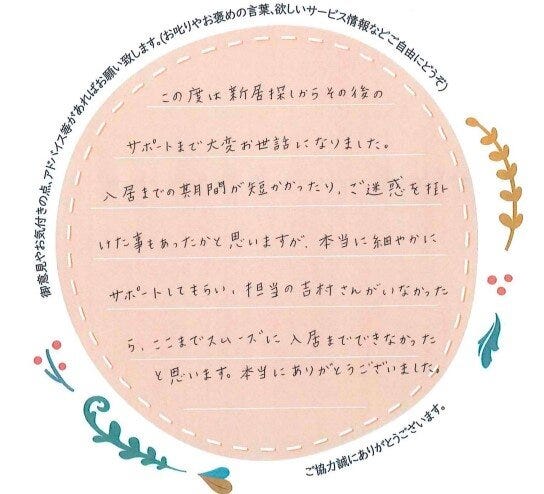 御意見やお気付きの点、アドバイス等があればお願い致します。(お叱りやお褒めの言葉、欲しいサービス情報などご自由にどうぞ)
この度は新居探しからその後の
サポートまで大変お世話になりました。
入居までの期間が短かかったり、ご迷惑を掛
けた事もあったかと思いますが、本当に細やかに
サポートしてもらい、担当の吉村さんがいなかった
ら、ここまでスムーズに入居までできなかった
と思います。本当にありがとうございました。
ご協力誠にありがとうございます。